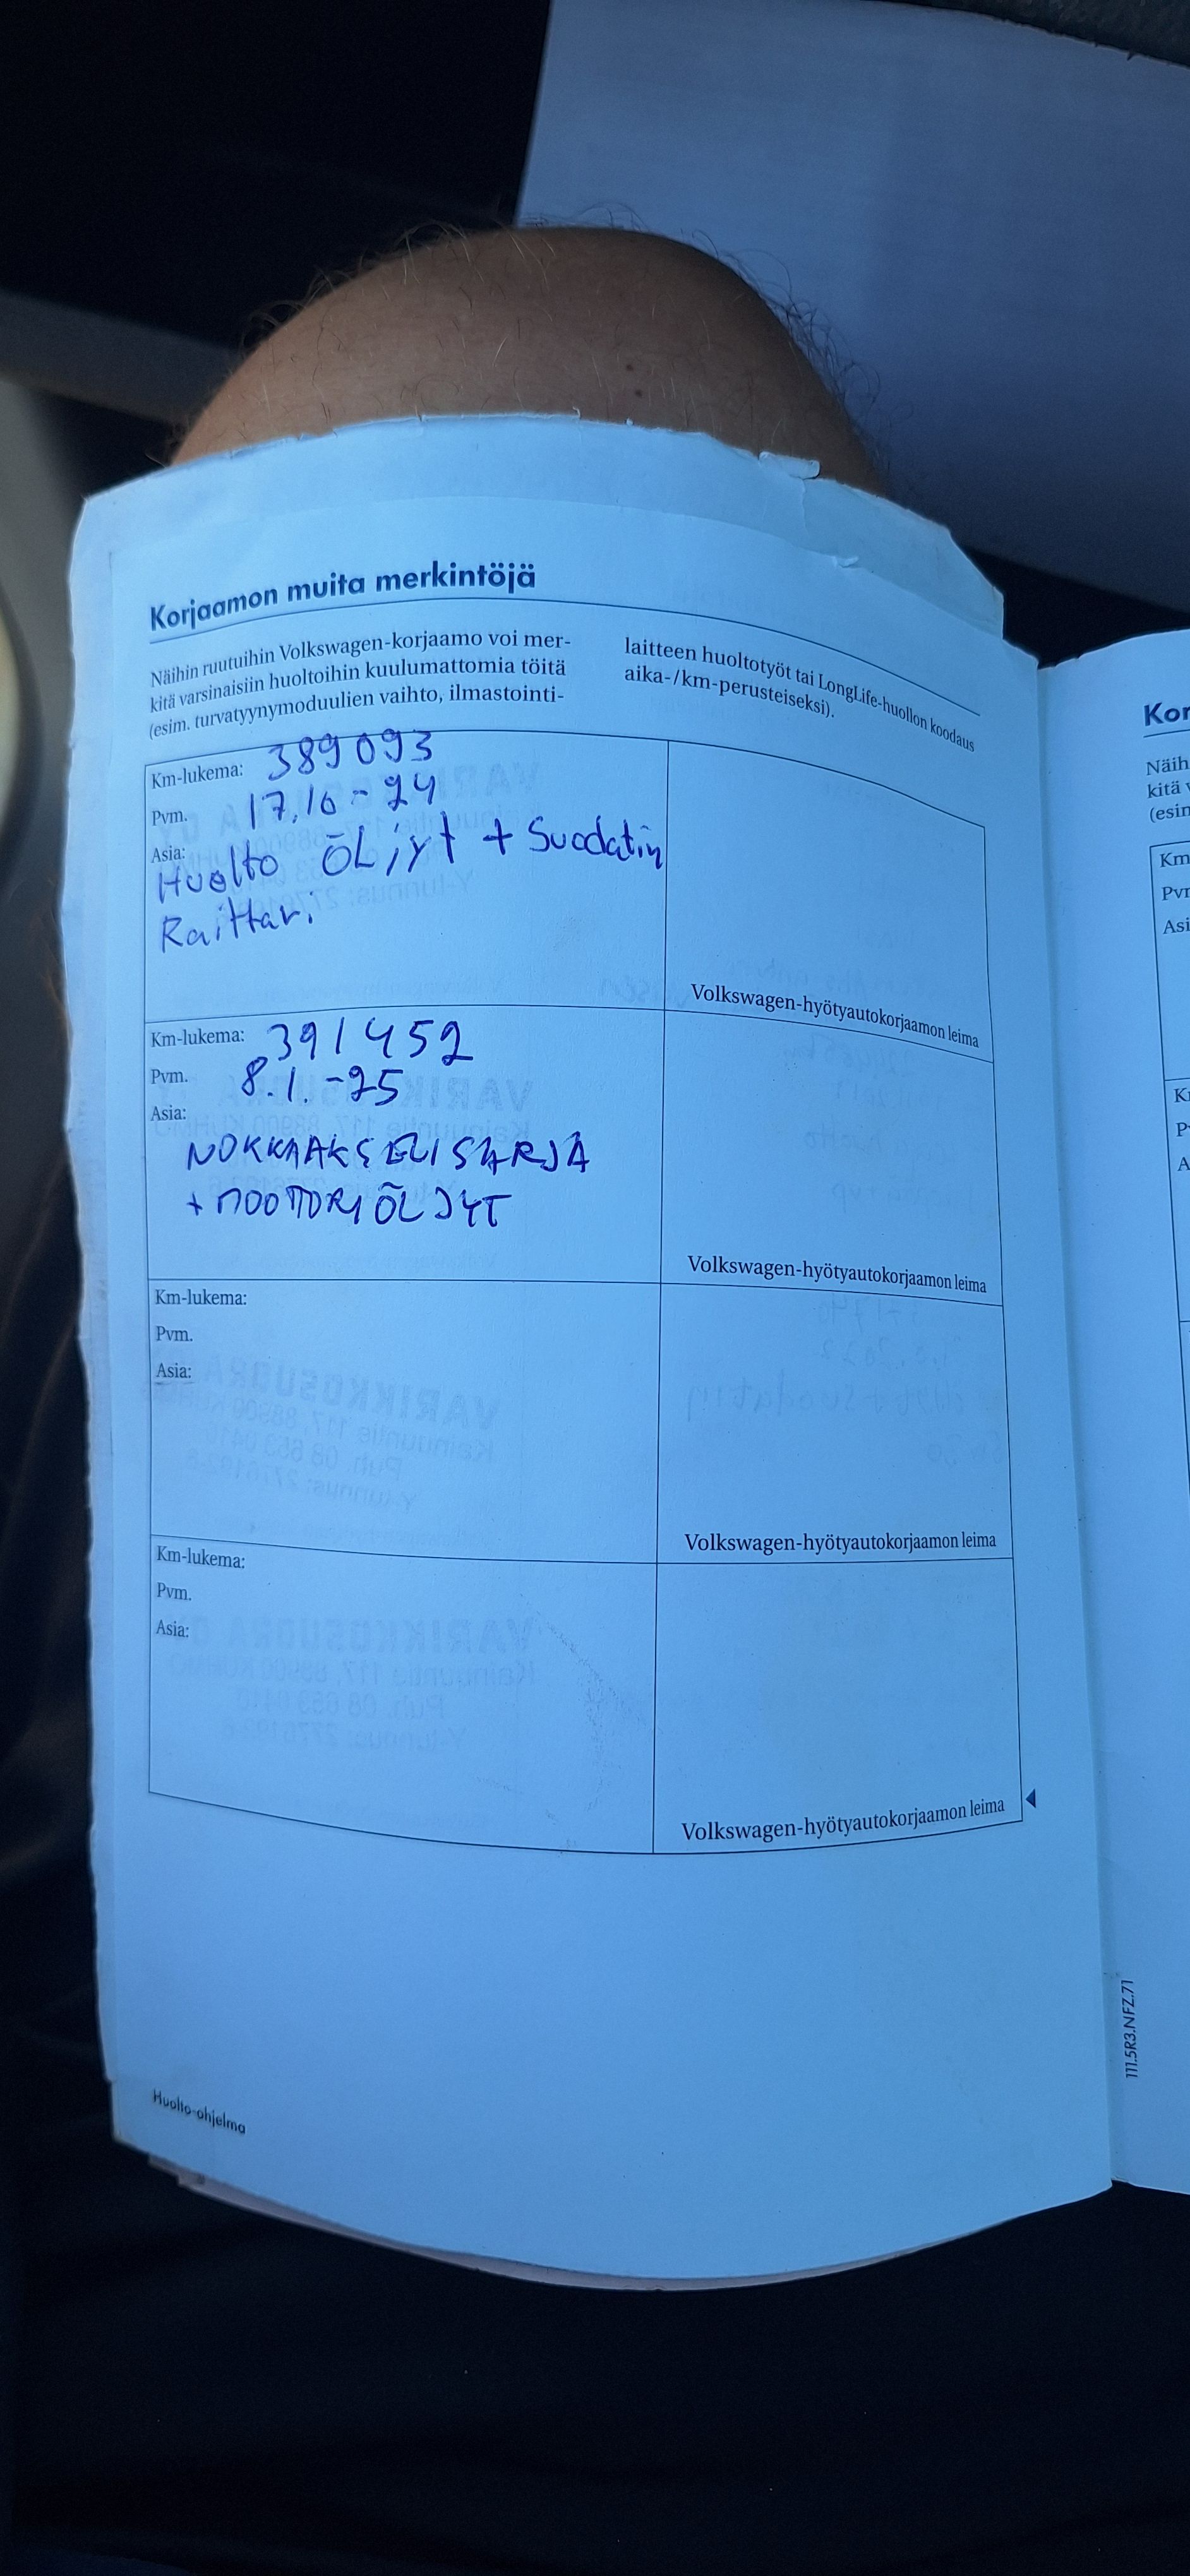 Korjaamon muita merkintöjä
Näihin ruutuihin Volkswagen-korjaamo voi mer-
kitä varsinaisiin huoltoihin kuulumattomia töitä
(esim. turvatyynymoduulien vaihto, ilmastointi-
laitteen huoltotyöt tai LongLife-huollon koodaus
aika-/km-perusteiseksi).
Km-lukema: 389093
Pvm. 17.10-24
Asia:
Huolto ÖLjyt + Suodatin
Raittari
Volkswagen-hyötyautokorjaamon leima
Km-lukema: 391452
Pvm. 8.1.-25
Asia:
NOKKAAKSELISARJA
+ MOOTTORIÖLJYT
Volkswagen-hyötyautokorjaamon leima
Km-lukema:
Pvm.
Asia:
Volkswagen-hyötyautokorjaamon leima
Km-lukema:
Pvm.
Asia:
Volkswagen-hyötyautokorjaamon leima
Huolto-ohjelma
111.5R3.NFZ.71
Kor
Näih
kitä
(esin
Km
Pvr
Asi
K
P
A